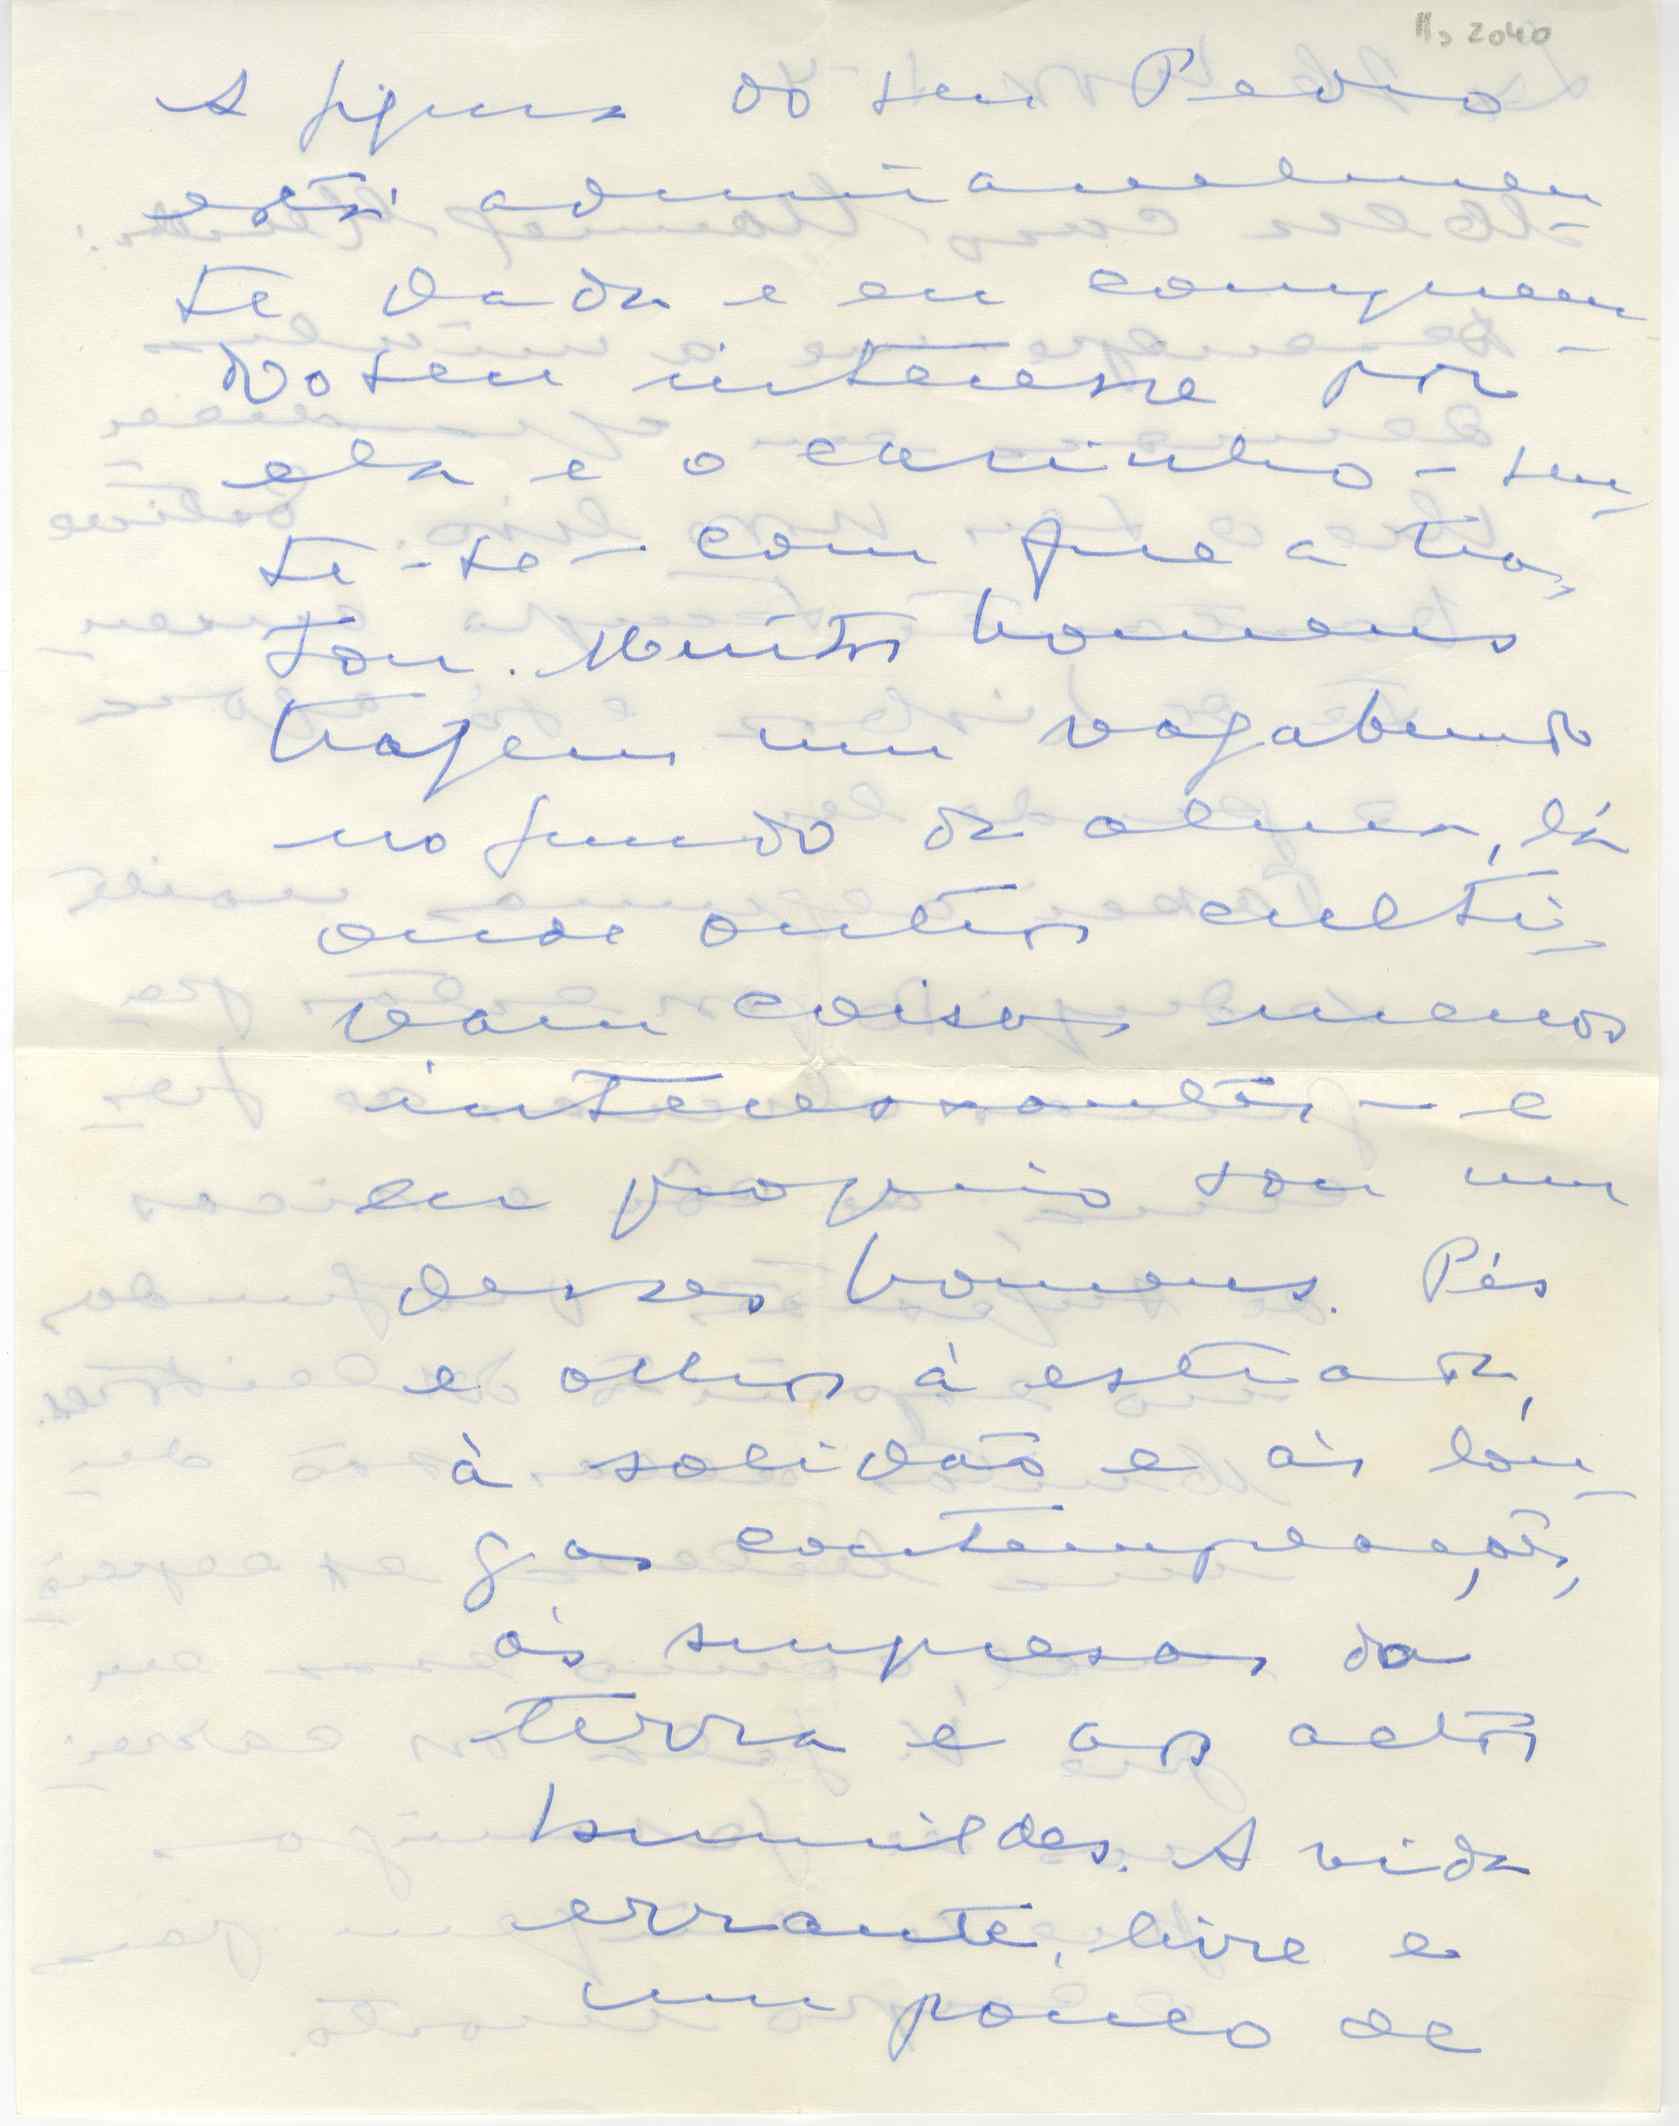 Ms 2040
A figura do seu Pedro
está admiravelmen-
te dada e eu compreen-
do seu interesse por
ela e o carinho - sen-
te-se - com que a tra-
tou. Muitos homens
trazem um vagabundo
no fundo da alma, lá
onde outros culti-
vam coisas menos
interessantes - e
eu próprio sou um
desses homens. Pés
e olhos à estrada,
à solidão e às lon-
gas contemplações,
às surpresas da
terra e aos actos
humildes. A vida
errante, livre e
um pouco de